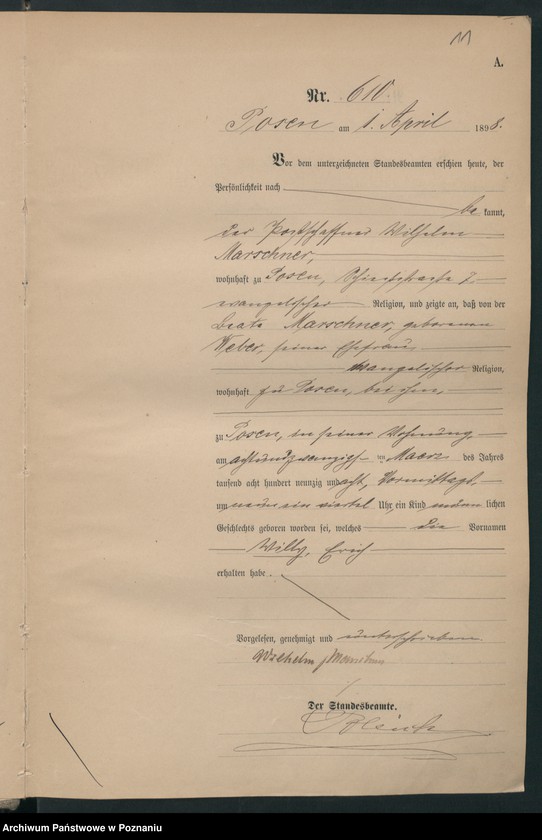 11
A.
Nr. 610.
Posen am 1. April 1898.
Vor dem unterzeichneten Standesbeamten erschien heute, der
Persönlichkeit nach
be kannt,
der Postschaffner Wilhelm
Marschner,
wohnhaft zu Posen, 7.
evangelischer Religion, und zeigte an, daß von der
Beate Marschner, geborenen
Weber, seiner Ehefrau
evangelischer Religion,
wohnhaft zu Posen, bei ihm,
zu Posen, in seiner Wohnung,
am achtundzwanzigst en Maerz des Jahres
tausend acht hundert neunzig und acht, Vormittags
um neun ein viertel Uhr ein Kind männ lichen
Geschlechts geboren worden sei, welches die Vornamen
Willy, Erich
erhalten habe.
Vorgelesen, genehmigt und unterschrieben
Wilhelm Marschner
Der Standesbeamte.
Archiwum Państwowe w Poznaniu